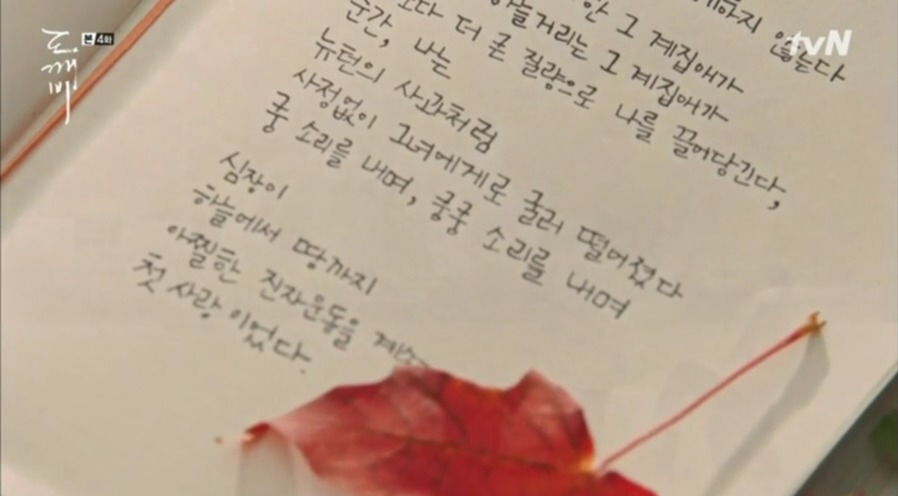 도깨비
본 4화
tvN
하지 않는다
그 계집애가
하늘거리는 그 계집애가
보다 더 큰 질량으로 나를 끌어당긴다,
순간, 나는
뉴턴의 사과처럼
사정없이 그녀에게로 굴러 떨어졌다
쿵 소리를 내며, 쿵쿵 소리를 내며
심장이
하늘에서 땅까지
아찔한 진자운동을
첫 사랑 이었다.